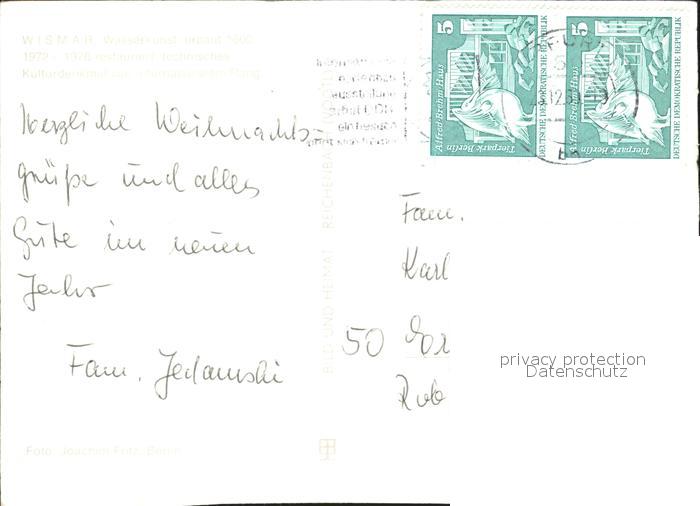 WISMAR. Wasserkunst, erbaut 1602
1972 - 1976 restauriert, technisches
Kulturdenkmal von internationalem Rang
Herzliche Weihnachts-
grüße und alles
Gute im neuen
Jahr
Fam. Jedamski
Foto: Joachim Fritz, Berlin
BILD UND HEIMAT REICHENBACH
5
Alfred Brehm Haus
Tierpark Berlin
DEUTSCHE DEMOKRATISCHE REPUBLIK
5
Alfred Brehm Haus
Tierpark Berlin
DEUTSCHE DEMOKRATISCHE REPUBLIK
Fam.
Karl
50
Rub
privacy protection
Datenschutz